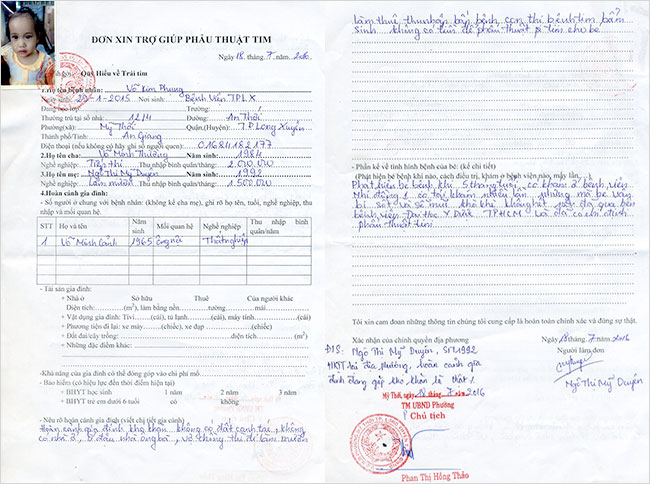 ĐƠN XIN TRỢ GIÚP PHẪU THUẬT TIM
Ngày 18 tháng 7 năm 2016
Quỹ Hiểu về Trái tim
1.Họ tên bệnh nhân: Võ Kim Phụng
Ngày sinh: 29-1-2015 Nơi sinh: Bệnh Viện TPLX
Đang học lớp: Trường:
Thường trú tại số nhà: 12/4 Đường: An Thới
Phường(xã): Mỹ Thới Quận,(Huyện): TP Long Xuyên
Thành phố/Tỉnh: An Giang
Điện thoại (nếu không có hãy ghi số người quen): 01684182177
2.Họ tên cha: Võ Minh Thương Năm sinh: 1984
Nghề nghiệp: Tiếp thị Thu nhập bình quân/tháng: 2.000.000
3.Họ tên mẹ: Ngô Thị Mỹ Duyên Năm sinh: 1992
Nghề nghiệp: Làm mướn Thu nhập bình quân/tháng: 1.500.000
4.Hoàn cảnh gia đình:
- Số người ở chung với bệnh nhân: (không kể cha mẹ), ghi rõ họ tên, tuổi, nghề nghiệp, thu
nhập và mối quan hệ.
STT Họ và tên Năm sinh Mối quan hệ Nghề nghiệp Thu nhập bình quân/năm
1 Võ Minh Cảnh 1965 ông nội Thất nghiệp
- Tài sản gia đình:
+ Nhà ở Sở hữu Thuê Của người khác
Diện tích: (m²), làm bằng nền tường mái
+ Vật dụng gia đình: Tivi (cái), tủ lạnh (cái), máy tính (cái)
+ Phương tiện đi lại: xe máy (chiếc), xe đạp (chiếc)
+ Đất đai/cây trồng: diện tích (m²)
+ Những đặc điểm khác:
-Khả năng của gia đình có thể đóng góp vào chi phí mổ:
- Bảo hiểm (có hiệu lực đến thời điểm hiện tại)
+ BHYT học sinh 1 năm 2 năm 3 năm
+ BHYT trẻ em dưới 6 tuổi có không
- Nêu rõ hoàn cảnh gia đình (viết chi tiết gia cảnh)
Hoàn cảnh gia đình khó khăn không có đất canh tác, không
có nhà ở, ở đậu nhà ông bà, vợ chồng thì đi làm mướn
làm thuê, thu nhập bấp bênh, con thì bệnh tim bẩm
sinh không có tiền để phẫu thuật tim cho bé
- Phần kể về tình hình bệnh của bé: (kể chi tiết)
(Phát hiện bé bệnh khi nào, cách điều trị, khám ở bệnh viện nào, mấy lần,
Phát hiện bé bệnh khi 5 tháng tuổi, có khám ở bệnh viện
Nhi đồng 1 có tái khám nhiều lần, nhưng mà bé vẫn
bị sốt và sổ mũi, thở khò khè không hết nên đã qua bên
bệnh viện Đại Học Y Dược TPHCM và đã có chỉ định
phẫu thuật tim
Tôi xin cam đoan những thông tin chúng tôi cung cấp là hoàn toàn chính xác và đúng sự thật.
Xác nhận của chính quyền địa phương
Ngày 18 tháng 7 năm 2016
Người làm đơn
Ngô Thị Mỹ Duyên, SN 1992
HKTT tại địa phương, hoàn cảnh gia
đình đang gặp khó khăn là thật.
Ngô Thị Mỹ Duyên
Mỹ Thới, ngày 18 / 7 / 2016
TM UBND Phường
Chủ tịch
Phan Thị Hồng Thảo